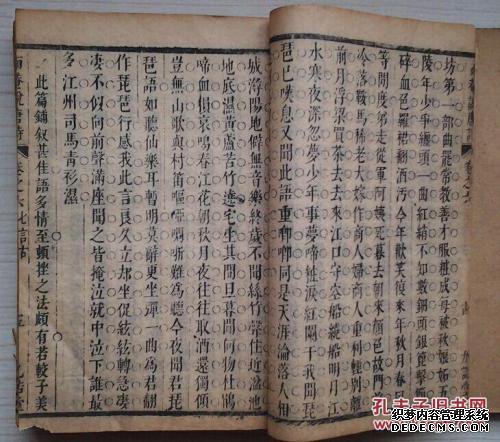 坊第一部曲罷常教善才服粧成每被秋娘妬
陵年少爭纏頭一曲紅綃不知數鈿頭銀篦擊節
碎血色羅裙翻酒汙今年歡笑復來年秋月春風
等閒度弟走從軍阿姨死暮去朝來顔色故門前
冷落鞍馬稀老大嫁作商人婦商人重利輕別離
前月浮梁買茶去去來江口守空船繞船明月江
水寒夜深忽夢少年事夢啼粧淚紅闌干我聞琵
琶已嘆息又聞此語重唧唧同是天涯淪落人相
城潯陽地僻無音樂終歲不聞絲竹聲住近湓池
地底濕黃蘆苦竹遶宅生其間旦暮聞何物杜鵑
啼血猿哀鳴春江花朝秋月夜往往取酒還獨傾
豈無山歌與村笛嘔啞嘲哳難爲聽今夜聞君琵
琶語如聽仙樂耳暫明莫辭更坐彈一曲爲君翻
作琵琶行感我此言良久立却坐促絃絃轉急凄
凄不似向前聲滿座聞之皆掩泣就中泣下誰最
多江州司馬青衫濕
此篇鋪叙甚佳語多情至頓挫之法頗有若較子美
而菴說唐詩 卷之六七言古 五
孔夫子旧书网
织梦内容管理系统
DEDECMS.COM